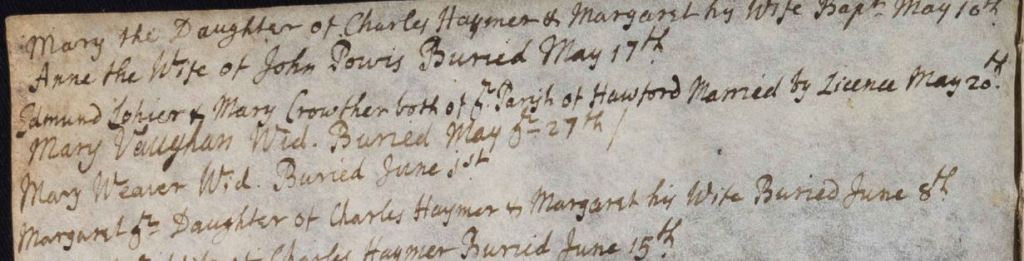 Mary the Daughter of Charles Haymer & Margaret his Wife Bapt. May 10th
Anne the Wife of John Powis Buried May 17th
Edmund & Mary Crowther both of ye Parish of Hawford Married by Licence May 20th
Mary Vaughan Wid. Buried May ye 27th
Mary Weaver Wid. Buried June 1st
Margaret ye Daughter of Charles Haymer & Margaret his Wife Buried June 8th
Charles Haymer Buried June 15th